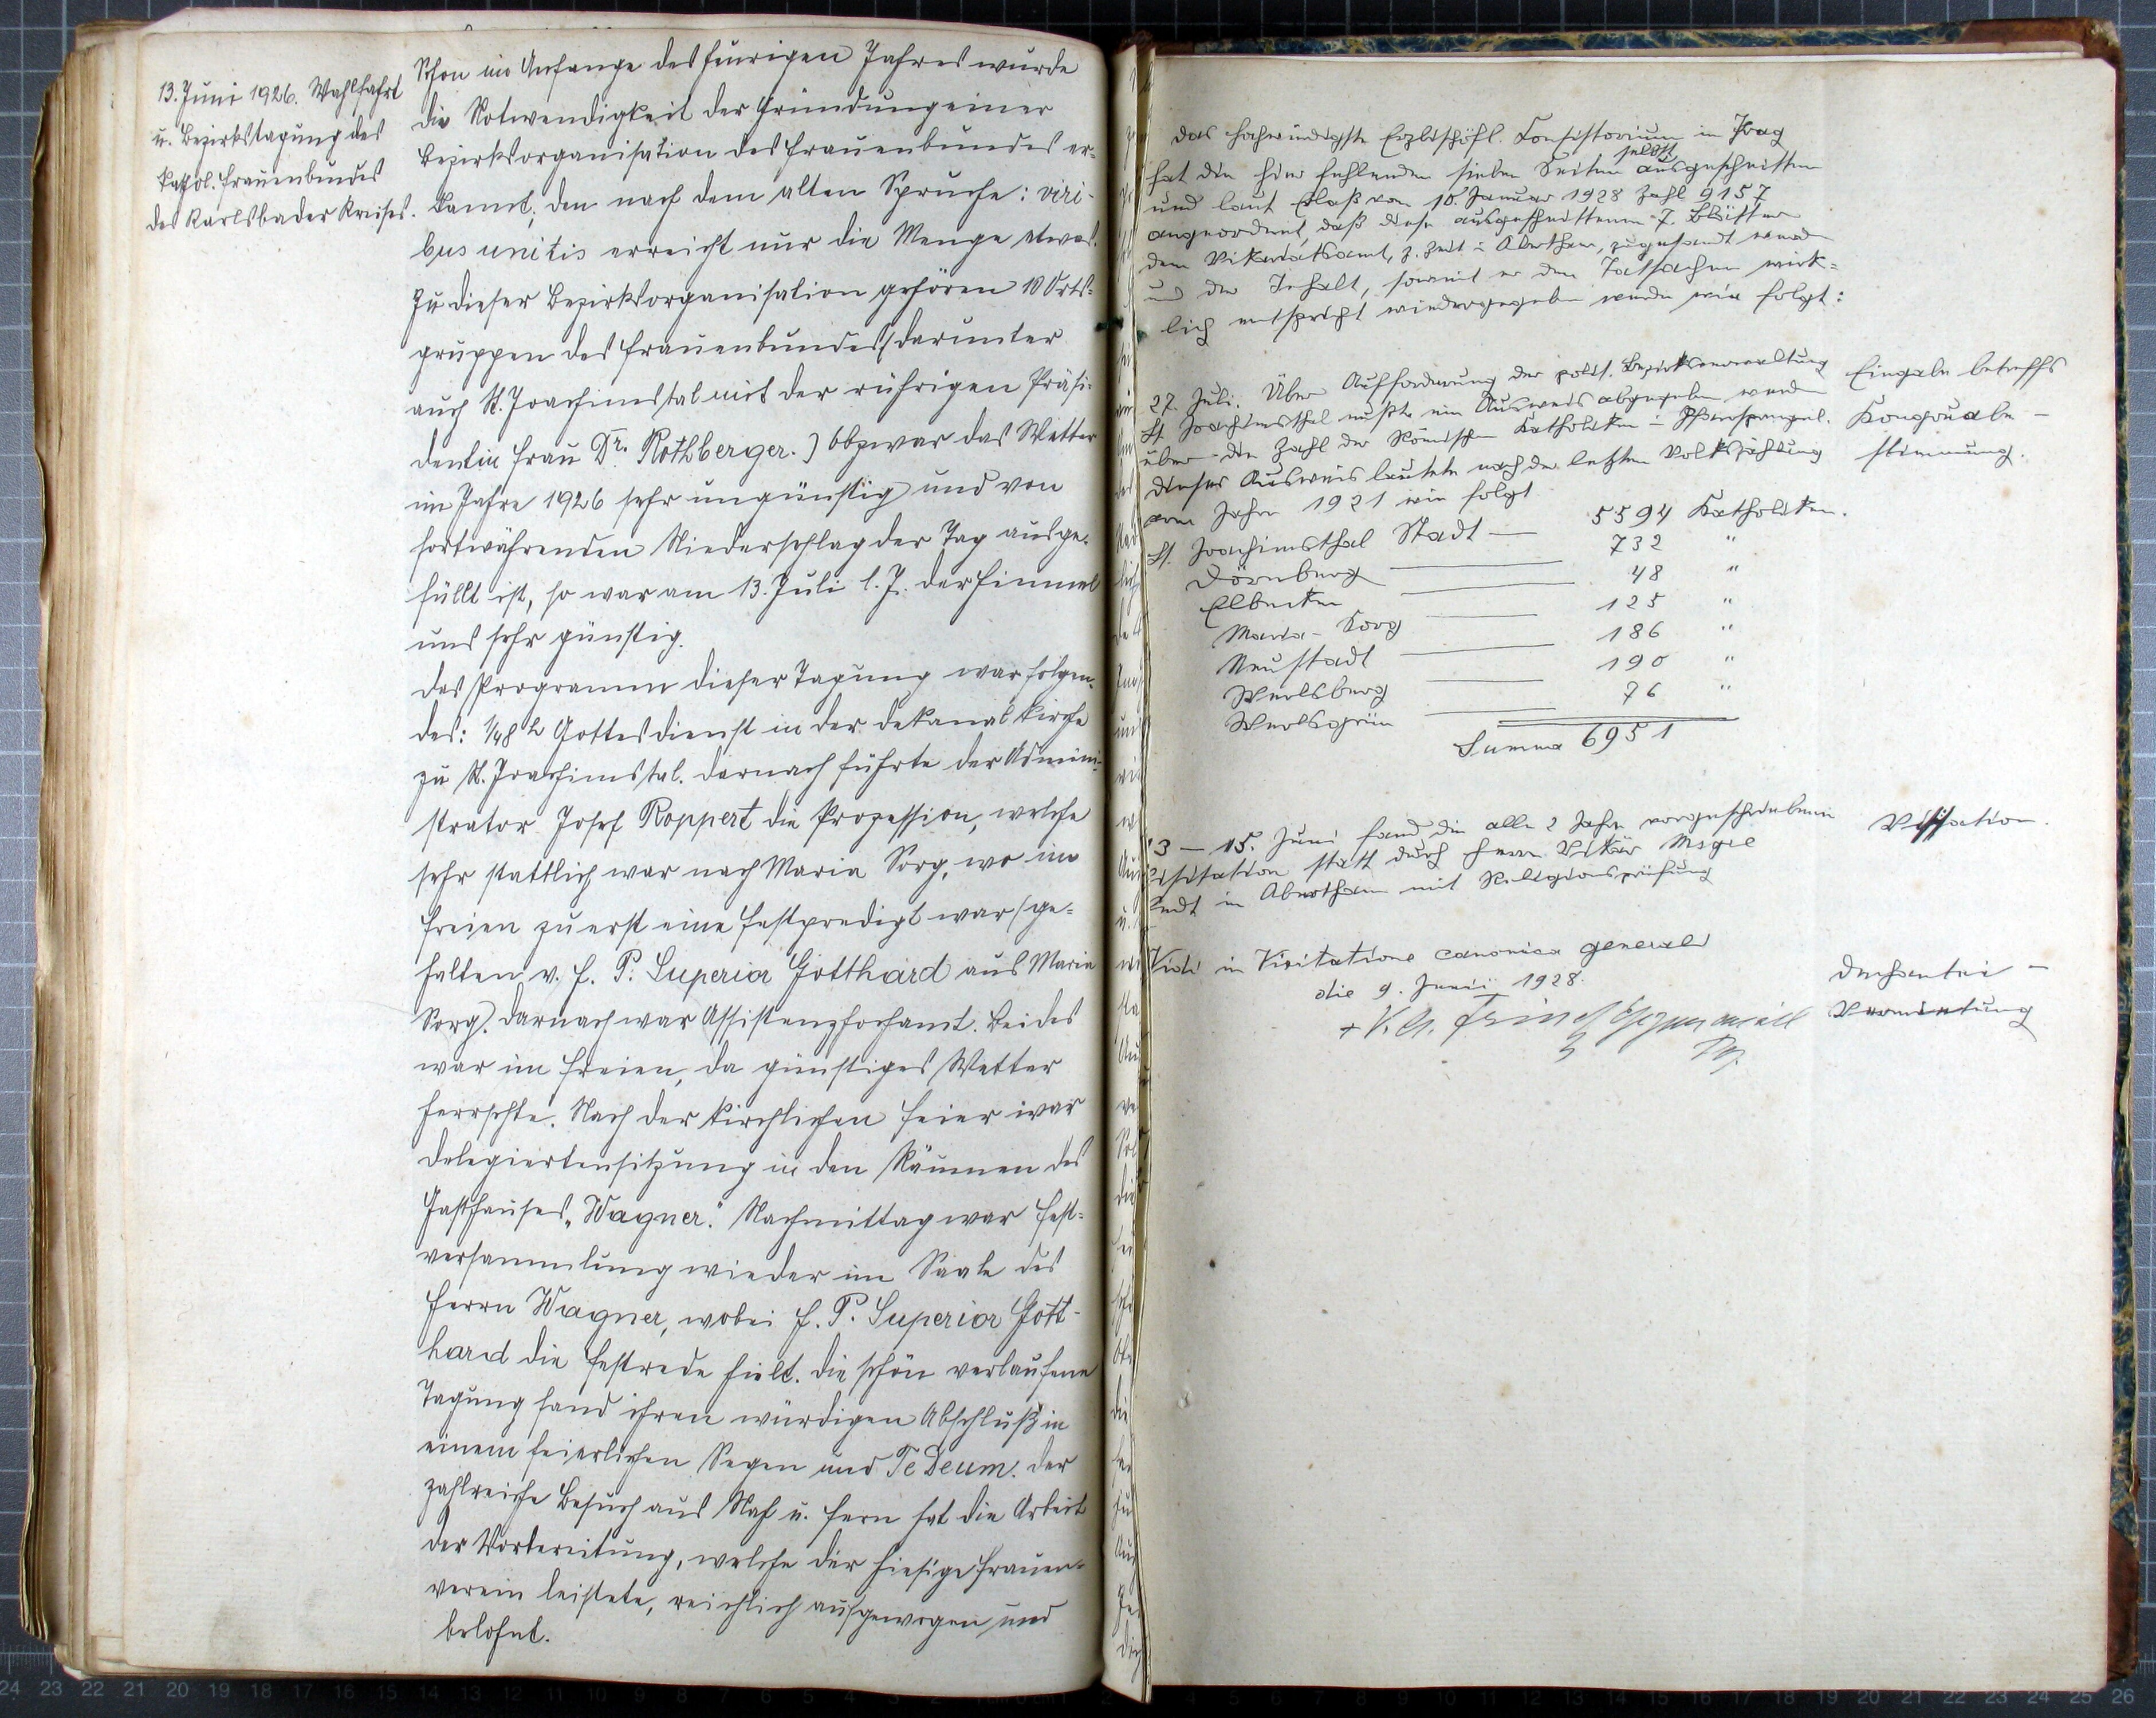 13. Juni 1926. Wahlfahrt
u. Bezirkstagung des
kathol. Frauenbundes
des Karlsbader Kreises.
Schon im Anfange des heurigen Jahres wurde
die Notwendigkeit der Gründung einer
Bezirksorganisation des Frauenbundes er-
kannt, den nach dem alten Spruche: viri-
bus unitis erreicht nur die Menge etwas.
Zu dieser Bezirksorganisation gehören 10 Orts-
gruppen des Frauenbundes (darunter
auch St. Joachimstal mit der rührigen Präsi-
dentin Frau Dr. Rothberger.) Obzwar das Wetter
im Jahre 1926 sehr ungünstig und von
fortwährenden Niederschlag der Tag ausge-
füllt ist, so war am 13. Juli l. J. der Himmel
uns sehr günstig.
Das Programm dieser Tagung war folgen-
des: 1/48 h Gottesdienst in der Dekanalkirche
zu St. Joachimstal. Darnach führte der Admini-
strator Josef Roppert die Prozession, welche
sehr stattlich war nach Maria Sorg, wo im
Freien zu erst eine Festpredigt war (ge-
halten v. H. P. Superior Gotthard aus Maria
Sorg). Darnach war Assistenzhochamt. Beides
war im Freien, da günstiges Wetter
herrschte. Nach der kirchlichen Feier war
Delegiertensitzung in den Räumen des
Gasthauses „Wagner." Nachmittag war Fest-
versammlung wieder im Saale des
Herrn Wagner, wobei H. P. Superior Gott-
hard die Festrede hielt. Die schön verlaufene
Tagung fand ihren würdigen Abschluß in
einem feierlichen Segen und Te Deum. Der
zahlreiche Besuch aus Nah u. Fern hat die Arbeit
der Vorbereitung, welche der hiesige Frauen-
verein leistete, reichlich aufgewogen und
belohnt.
Das hochwürdigste Erzbischöfl. Konsistorium in Prag
hat die hier fehlenden sieben Seiten selbst ausgeschnitten
und laut Erlaß vom 10. Januar 1928 Zahl 9157
angeordnet, daß diese ausgeschnittenen 7 Blätter
dem Vikariatsamt, z. Zeit in Abertham, zugesandt werden
und der Inhalt, soweit er den Tatsachen wirk-
lich entspricht wiedergegeben werde wie folgt:
27. Juli. Über Aufforderung der polit. Bezirksverwaltung
St. Joachimsthal mußte ein Ausweis abgegeben werden
über die Zahl der Römischen Katholiken
dieser Ausweis lautete nach der letzten Volkszählung
vom Jahre 1921 wie folgt
Eingabe betreffs
Kongruabe-
stimmung.
St. Joachimsthal Stadt — 5594 Katholiken.
Dörnberg — 732 "
Elbecken — 48 "
Maria-Sorg — 125 "
Neustadt — 186 "
Werlsberg — 190 "
Werlsgrün — 76 "
Summa 6951
13 – 15. Juni fand die alle 2 Jahre vorgeschriebene
Visitation statt durch Herrn Vikär
in Abertham mit Religionsprüfung
Visitation.
Vidi in Visitatione canonica generali
die 9. Junii 1928.
Dechantei-
Vermietung